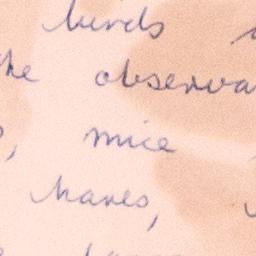 birds
the observa
, mice
hares,